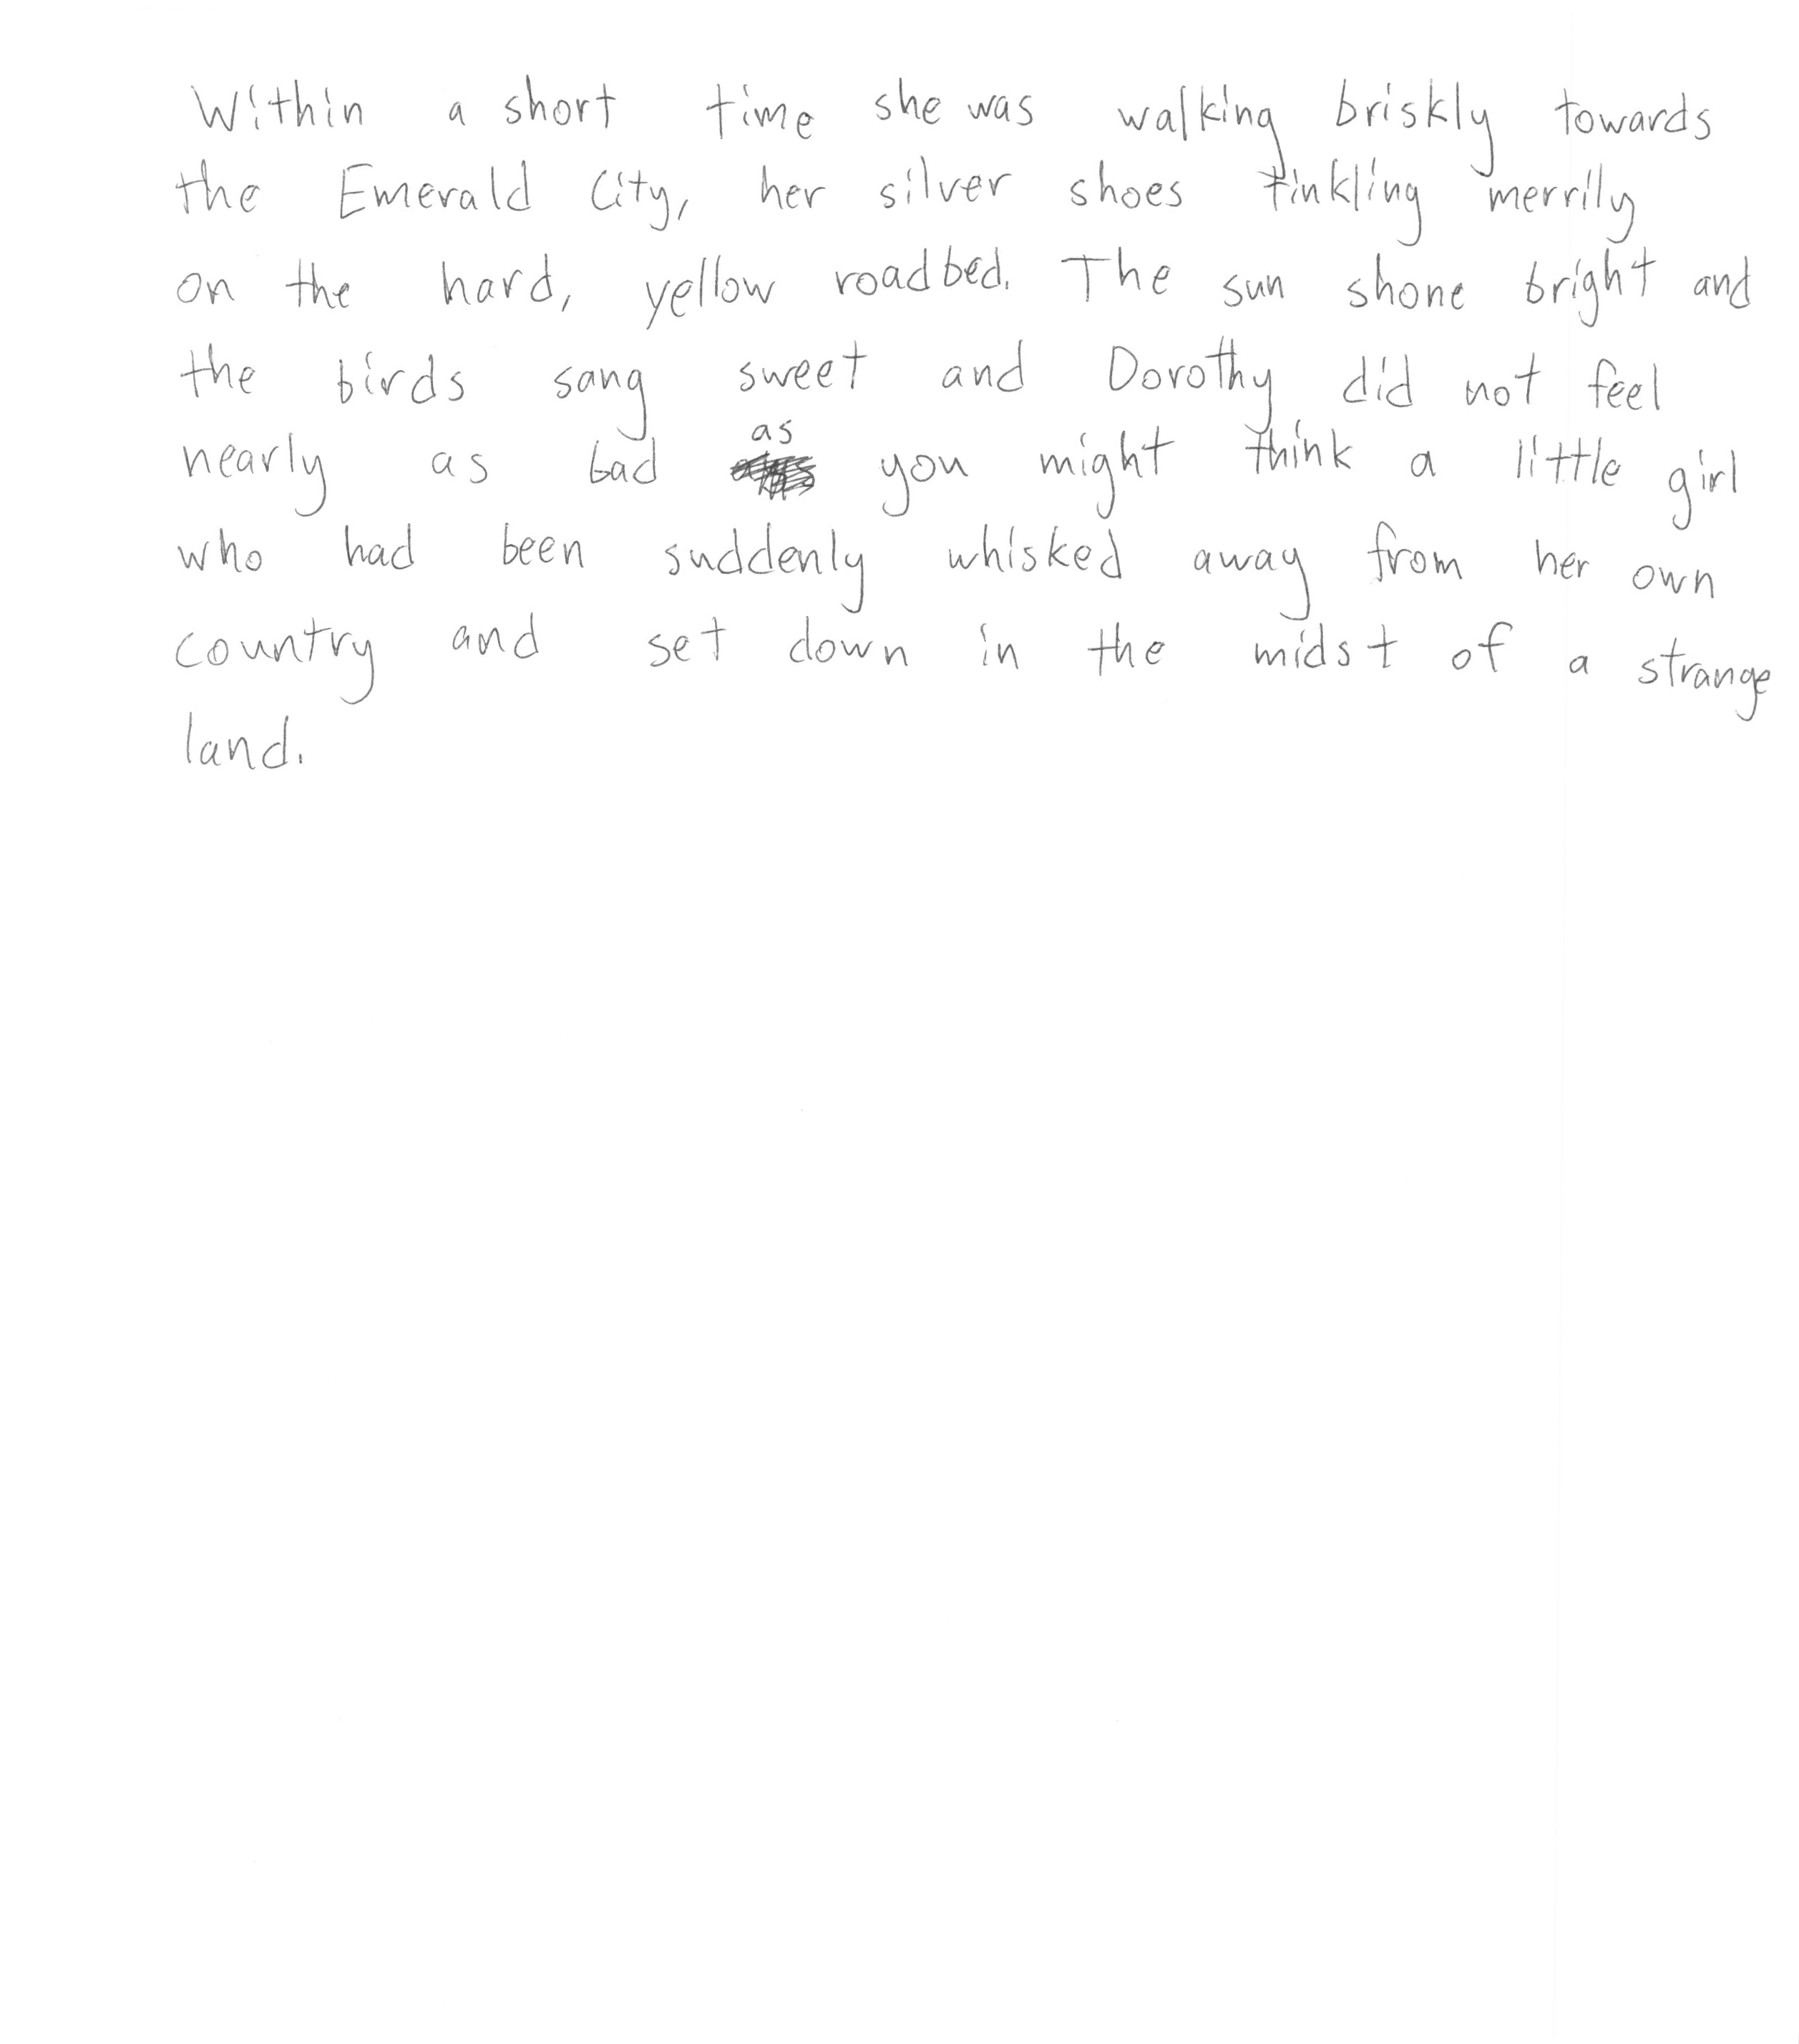 Within a short time she was walking briskly towards
the Emerald City, her silver shoes tinkling merrily
on the hard, yellow roadbed. The sun shone bright and
the birds sang sweet and Dorothy did not feel
nearly as bad as you might think a little girl
who had been suddenly whisked away from her own
country and set down in the midst of a strange
land.